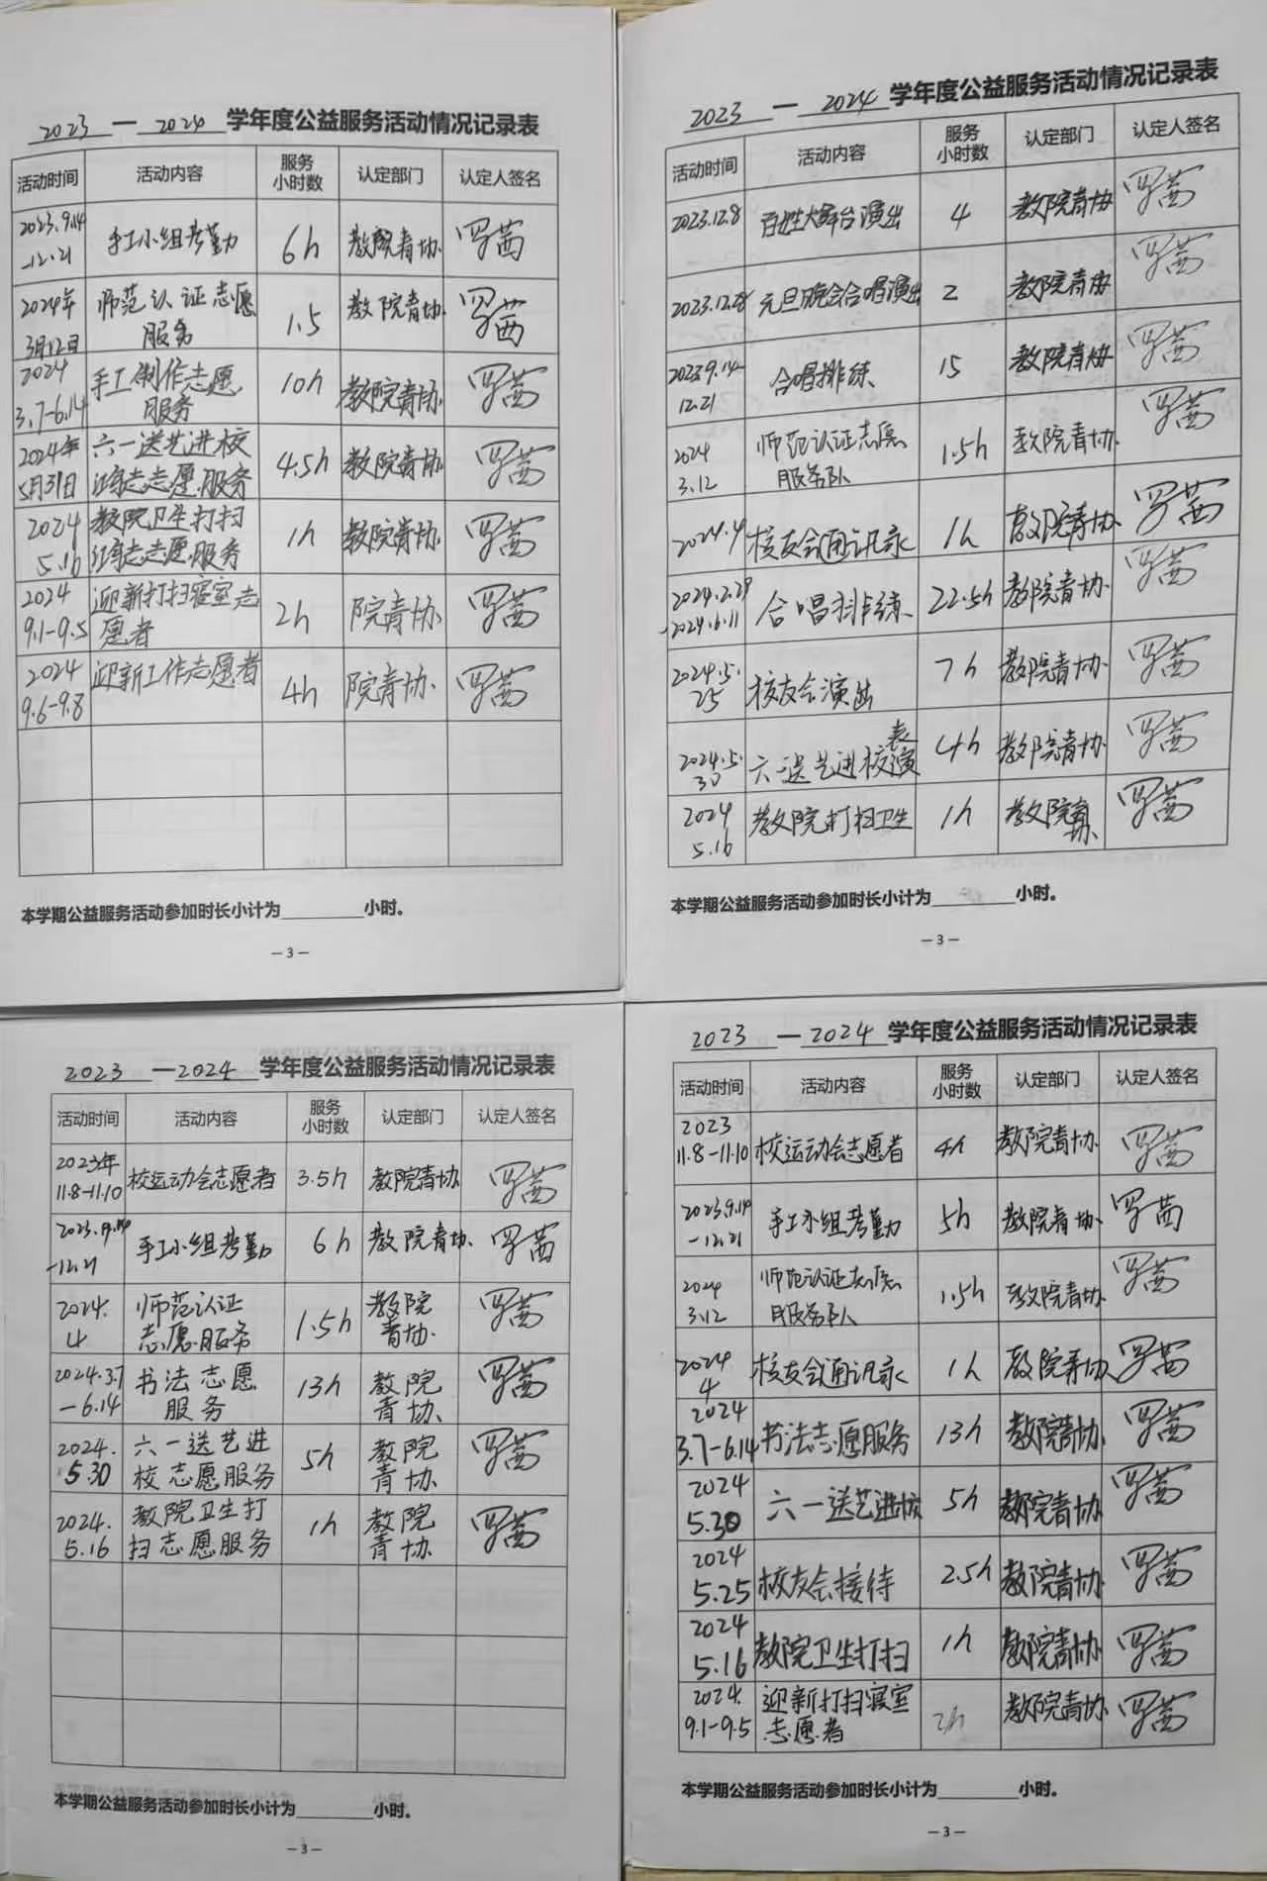 2023 — 2024 学年度公益服务活动情况记录表
活动时间 活动内容 服务小时数 认定部门 认定人签名
2023.9.14-12.21 手工小组考勤 6h 教院青协 罗茜
2024年3月12日 师范认证志愿服务 1.5 教院青协 罗茜
2024 3.7-6.14 手工制作志愿服务 10h 教院青协 罗茜
2024年5月31日 六一送艺进校志愿服务 4.5h 教院青协 罗茜
2024 5.16 教院卫生打扫志愿服务 1h 教院青协 罗茜
2024 9.1-9.5 迎新打扫寝室志愿者 2h 院青协 罗茜
2024 9.6-9.8 迎新工作志愿者 4h 院青协 罗茜
本学期公益服务活动参加时长小计为________小时。
—3—
2023 — 2024 学年度公益服务活动情况记录表
活动时间 活动内容 服务小时数 认定部门 认定人签名
2023.12.8 百姓大舞台演出 4 教院青协 罗茜
2023.12.28 元旦晚会合唱演出 2 教院青协 罗茜
2023.9.14-12.21 合唱排练 15 教院青协 罗茜
2024 3.12 师范认证志愿服务队 1.5h 教院青协 罗茜
2024.4 校友会通讯录 1h 教院青协 罗茜
2024.2.29-2024.6.11 合唱排练 22.5h 教院青协 罗茜
2024.5.25 校友会演出 7h 教院青协 罗茜
2024.5.30 六一送艺进校表演 4h 教院青协 罗茜
2024 5.16 教院打扫卫生 1h 教院青协 罗茜
本学期公益服务活动参加时长小计为________小时。
—3—
2023 — 2024 学年度公益服务活动情况记录表
活动时间 活动内容 服务小时数 认定部门 认定人签名
2023年11.8-11.10 校运动会志愿者 3.5h 教院青协 罗茜
2023.9.14-12.21 手工小组考勤 6h 教院青协 罗茜
2024.4 师范认证志愿服务 1.5h 教院青协 罗茜
2024.3.7-6.14 书法志愿服务 13h 教院青协 罗茜
2024.5.30 六一送艺进校志愿服务 5h 教院青协 罗茜
2024.5.16 教院卫生打扫志愿服务 1h 教院青协 罗茜
本学期公益服务活动参加时长小计为________小时。
—3—
2023 — 2024 学年度公益服务活动情况记录表
活动时间 活动内容 服务小时数 认定部门 认定人签名
2023 11.8-11.10 校运动会志愿者 4h 教院青协 罗茜
2023.9.14-12.21 手工小组考勤 5h 教院青协 罗茜
2024 3.12 师范认证志愿服务队 1.5h 教院青协 罗茜
2024 4 校友会通讯录 1h 教院青协 罗茜
2024 3.7-6.14 书法志愿服务 13h 教院青协 罗茜
2024 5.30 六一送艺进校 5h 教院青协 罗茜
2024 5.25 校友会接待 2.5h 教院青协 罗茜
2024 5.16 教院卫生打扫 1h 教院青协 罗茜
2024. 9.1-9.5 迎新打扫寝室志愿者 2h 教院青协 罗茜
本学期公益服务活动参加时长小计为________小时。
—3—